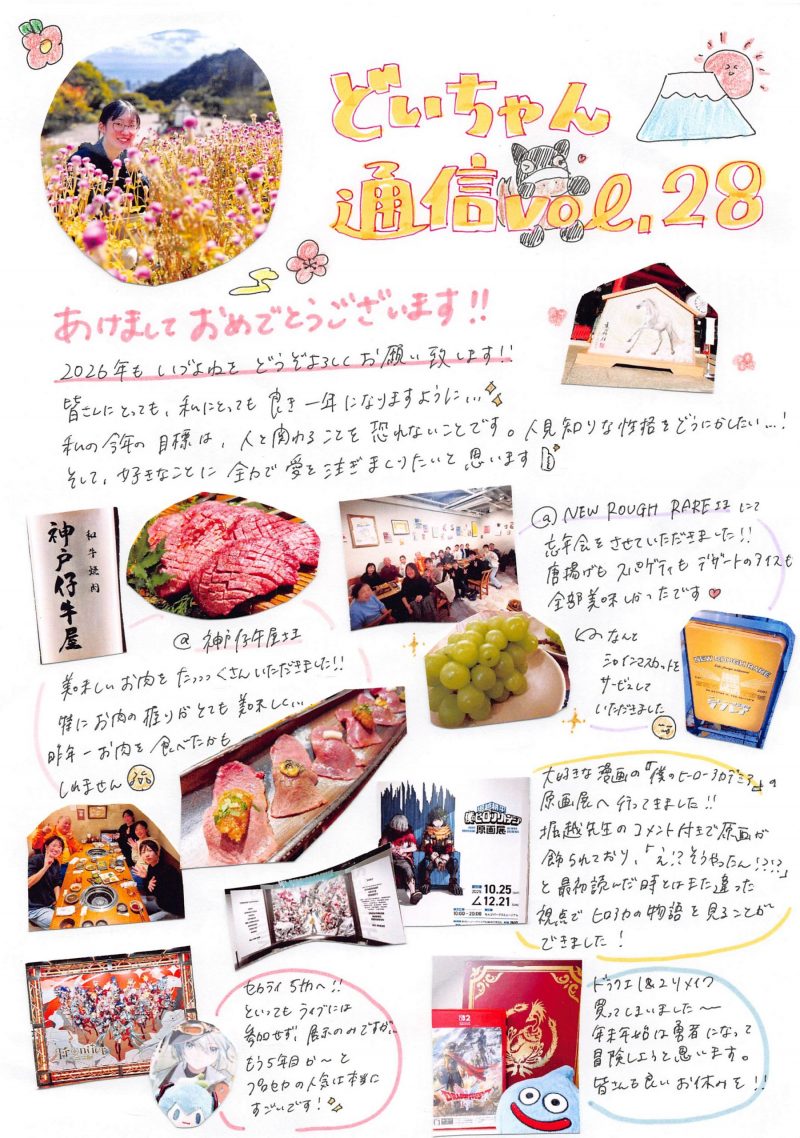 どいちゃん
通信vol.28
あけましておめでとうございます!!
2026年も いづよねを どうぞよろしく お願い致します!!
皆さんにとっても、私にとっても 良き一年になりますように…
私の今年の目標は、人と関わることを恐れないことです。人見知りな性格をどうにかしたい…!
そして、好きなことに 全力で愛を注ぎまくりたいと思います
和牛焼肉
神戸仔牛屋
@ NEW ROUGH RARE さま にて
忘年会をさせていただきました!!
唐揚げも スパゲティも デザートのアイスも
全部美味しかったです
@ 神戸仔牛屋さま
美味しいお肉を たっっっくさんいただきました!!
特にお肉の握りがとても美味しく…
昨年一お肉を食べたかも
しれません
なんと
シャインマスカットを
サービスして
いただきました
NEW ROUGH RARE
大好きな漫画の「僕のヒーローアカデミア」の
原画展へ行ってきました!!
堀越先生のコメント付きで原画が
飾られており、「え!?そうやったん!?!?」
と最初読んだ時とはまた違った
視点でヒロアカの物語を見ることが
できました!
原画展
2025
10.25
12.21
10:00-20:00
セカライ5thへ!!
といってもライブには
参加せず、展示のみですが、
もう5年目か〜と
プロセカの人気は本当に
すごいです!
Frontier
ドラクエ1&2リメイク
買ってしまいました〜
年末年始は勇者になって
冒険しようと思います。
皆さんも良いお休みを!!
DRAGON QUEST